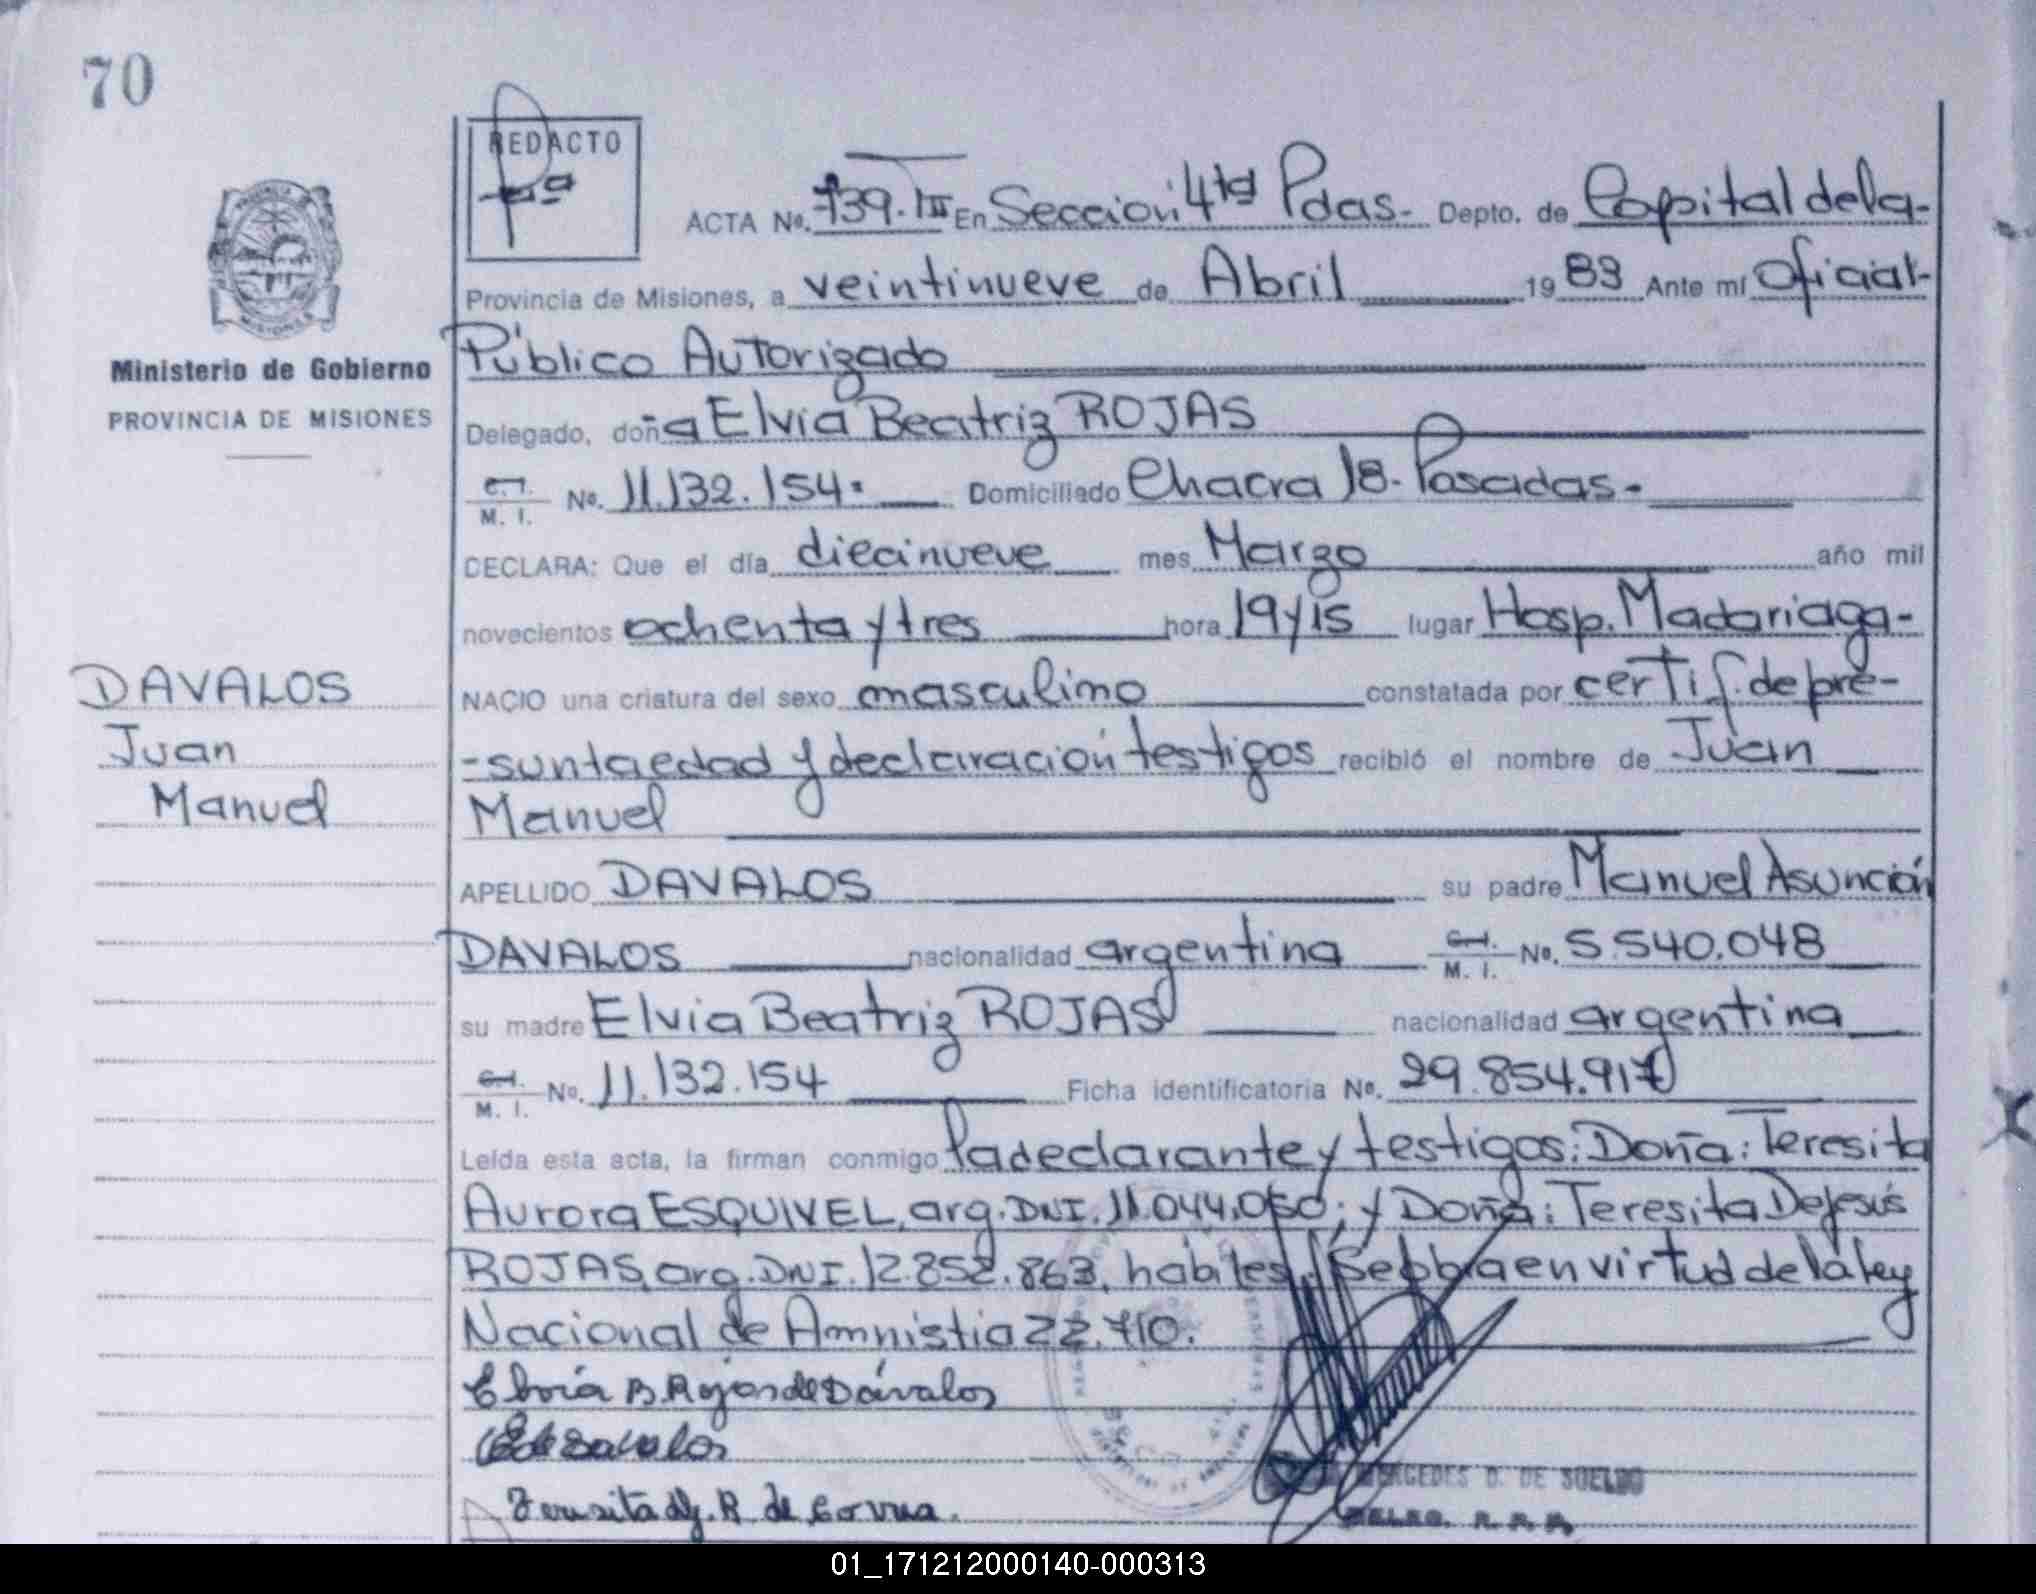 70
REDACTO
Fº
ACTA No. 739. III En Seccion 4ta Pdas.- Depto. de Capital de la-
Provincia de Misiones, a veintinueve de Abril 1983 Ante mí Oficial-
Público Autorizado
Delegado, doña Elvia Beatriz ROJAS
C. I.
M. I. No. 11.132.154. Domiciliado Chacra 18. Posadas.-
DECLARA: Que el día diecinueve mes Marzo año mil
novecientos ochenta y tres hora 19 y 15 lugar Hosp. Madariaga-
NACIO una criatura del sexo masculino constatada por certif. de pre-
-sunta edad y declaración testigos recibió el nombre de Juan
Manuel
APELLIDO DAVALOS su padre Manuel Asunción
DAVALOS nacionalidad argentina C. I. M. I. No. 5.540.048
su madre Elvia Beatriz ROJAS nacionalidad argentina
C. I. M. I. No. 11.132.154 Ficha identificatoria No. 29.854.917
Leída esta acta, la firman conmigo la declarante y testigos: Doña: Teresita
Aurora ESQUIVEL, arg. DNI. 11.044.050; y Doña: Teresita De Jesús
ROJAS, arg. DNI. 12.852.863, hábiles. Se labra en virtud de la ley
Nacional de Amnistia 22.710.
B. Rojas de Dávalos
Teresita de J. R. de
MERCEDES D. DE SUELDO
DELEG. R. P. P.
PROVINCIA
MISIONES
Ministerio de Gobierno
PROVINCIA DE MISIONES
DAVALOS
Juan
Manuel
01_171212000140-000313